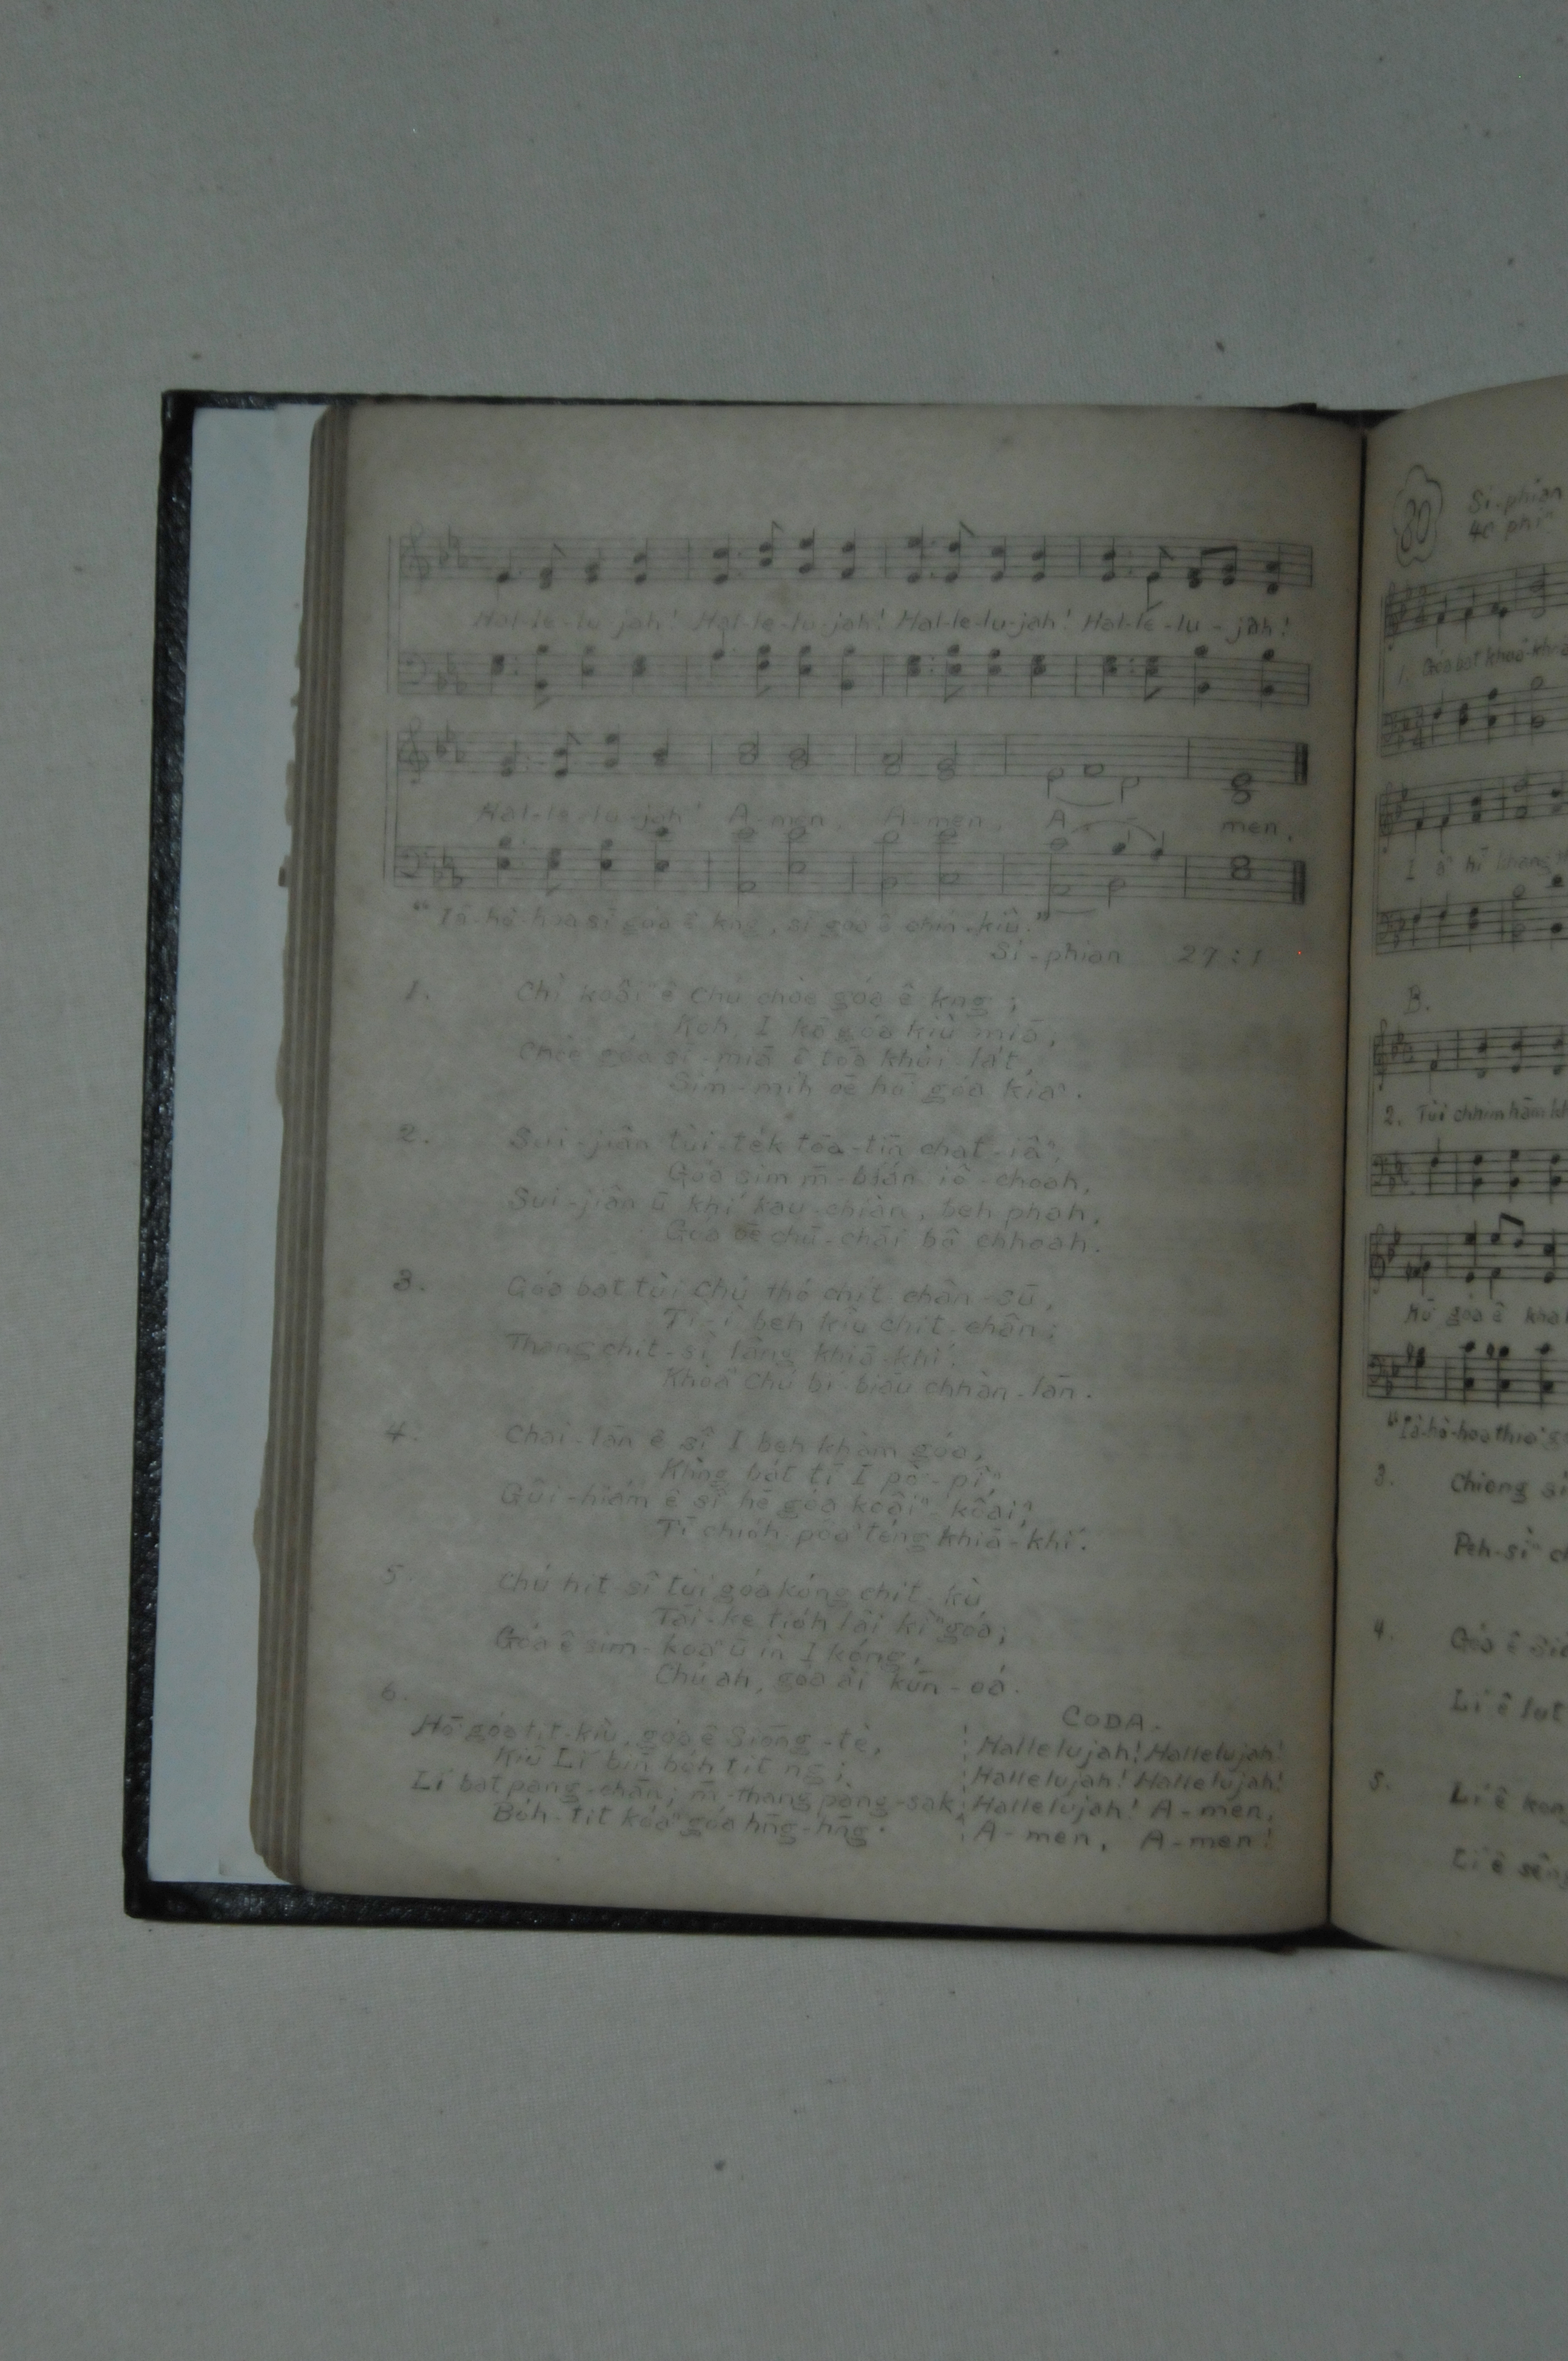 Hal-le-lu-jah! Hal-le-lu-jah! Hal-le-lu-jah! Hal-le-lu-jah!
Hal-le-lu-jah! A-men, A-men, A- men.
"Iâ-hô-hoa sī góa ê kng, sī góa ê chín-kiù."
Si-phian 27:1
1. Chí ê Chú chòe góa ê kng;
Koh, I kā góa kiù miā,
Chòe góa sìⁿ-miā ê tōa khùi-la̍t,
Sím-mi̍h ōe hō͘ góa kiaⁿ.
2. Sui-jiân tùi-te̍k tōa-tīn chat-iâⁿ,
Góa sim m̄-bián iô-choah,
Sui-jiân ū khí kau-chiàn, beh phah,
Góa ōe chū-chāi bô chhoah.
3. Góa bat tùi Chú thó chi̍t chân-sū,
Tì-ì beh kiû chi̍t chân;
Thang chi̍t-sì lâng khiā-khí,
Khòaⁿ Chú bí-biāu chhàn-lān.
4. Chai-lān ê sî I beh khàm góa,
Khǹg ba̍t tī I pò͘-pîⁿ,
Gûi-hiám ê sî hē góa koâiⁿ-koâiⁿ,
Tī chio̍h-pôaⁿ téng khiā-khí.
5. Chú hit sî tùi góa kóng chi̍t kù
Tāi-ke tio̍h lâi kìⁿ góa;
Góa ê sim-koaⁿ ū ìn I kóng,
Chú ah, góa ài kūn-óa.
6.
Hō͘ góa tit-kiù, góa ê Siōng-tè,
Kiû Lí bīn bo̍h tit ng;
Lí bat pang-chān; m̄-thang pàng-sak,
Bo̍h-tit kóaⁿ góa hn̄g-hn̄g.
CODA.
Hallelujah! Hallelujah!
Hallelujah! Hallelujah!
Hallelujah! A-men,
A-men, A-men!
80
Si-phian
40 phiⁿ
1. Góa bat khoâⁿ-khoâⁿ
B.
2. Tùi chhim hām
Hō͘ góa ê kha
"Iâ-hô-hoa thiaⁿ
3. Chiong
Peh-sìⁿ
4. Góa ê
Lí ê lut
5. Lí ê kong
Lí ê sêng